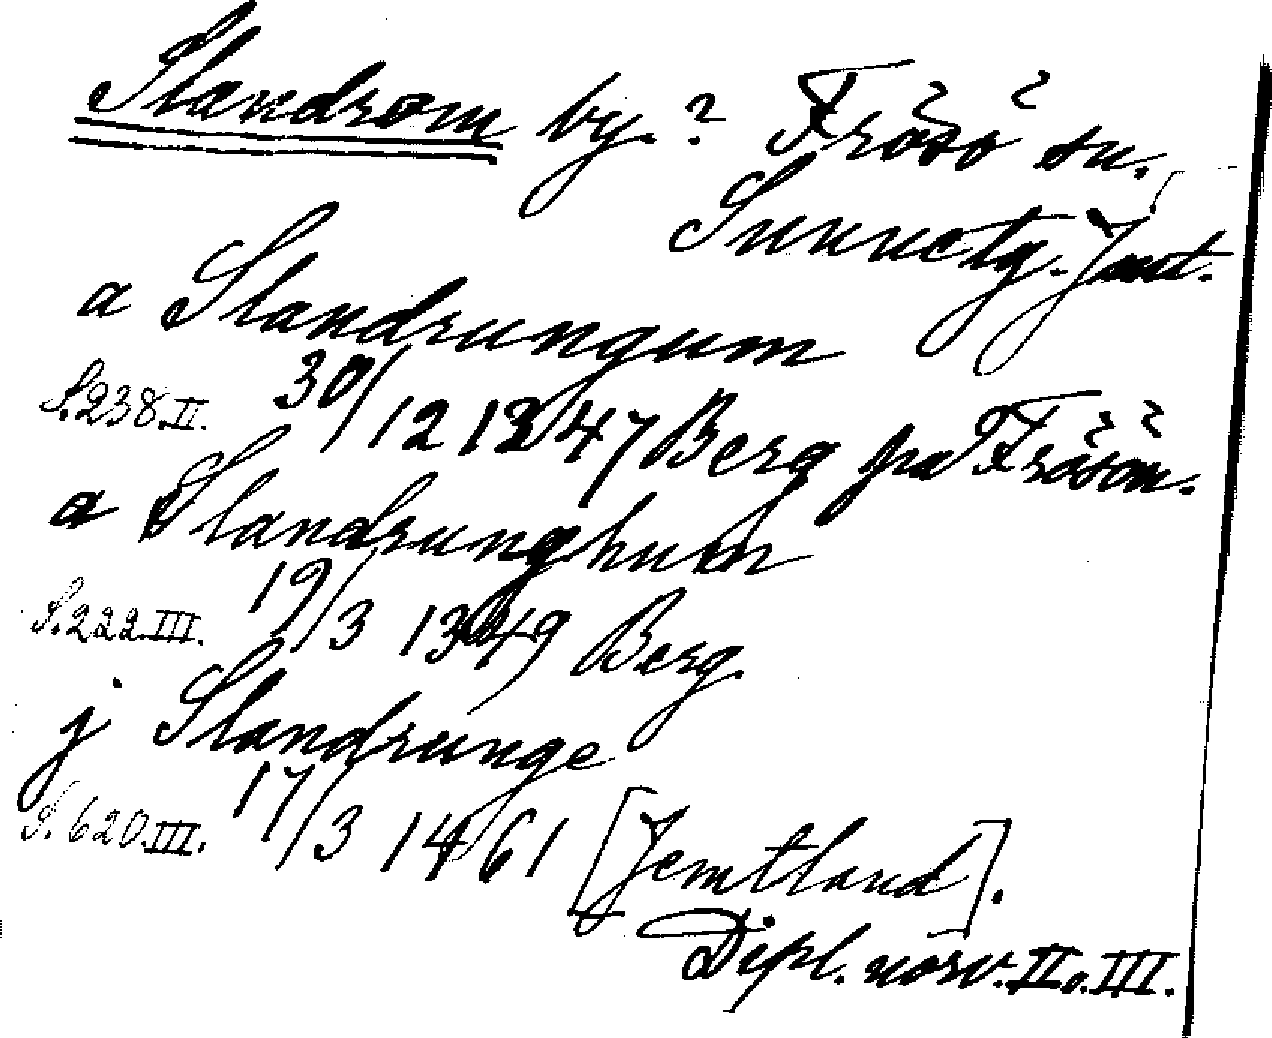 Slandrom by. ? Frösö sn.
Sunnetg. Jämt.
a Slandrungum
S.238.II. 30/12 1347 Berg pa Frösön.
a Slandrunghum
S.222.III. 19/3 1349 Berg.
j Slandrunge
S.620.III. 17/3 1461 [Jemtland].
Dipl. norv. II o. III.